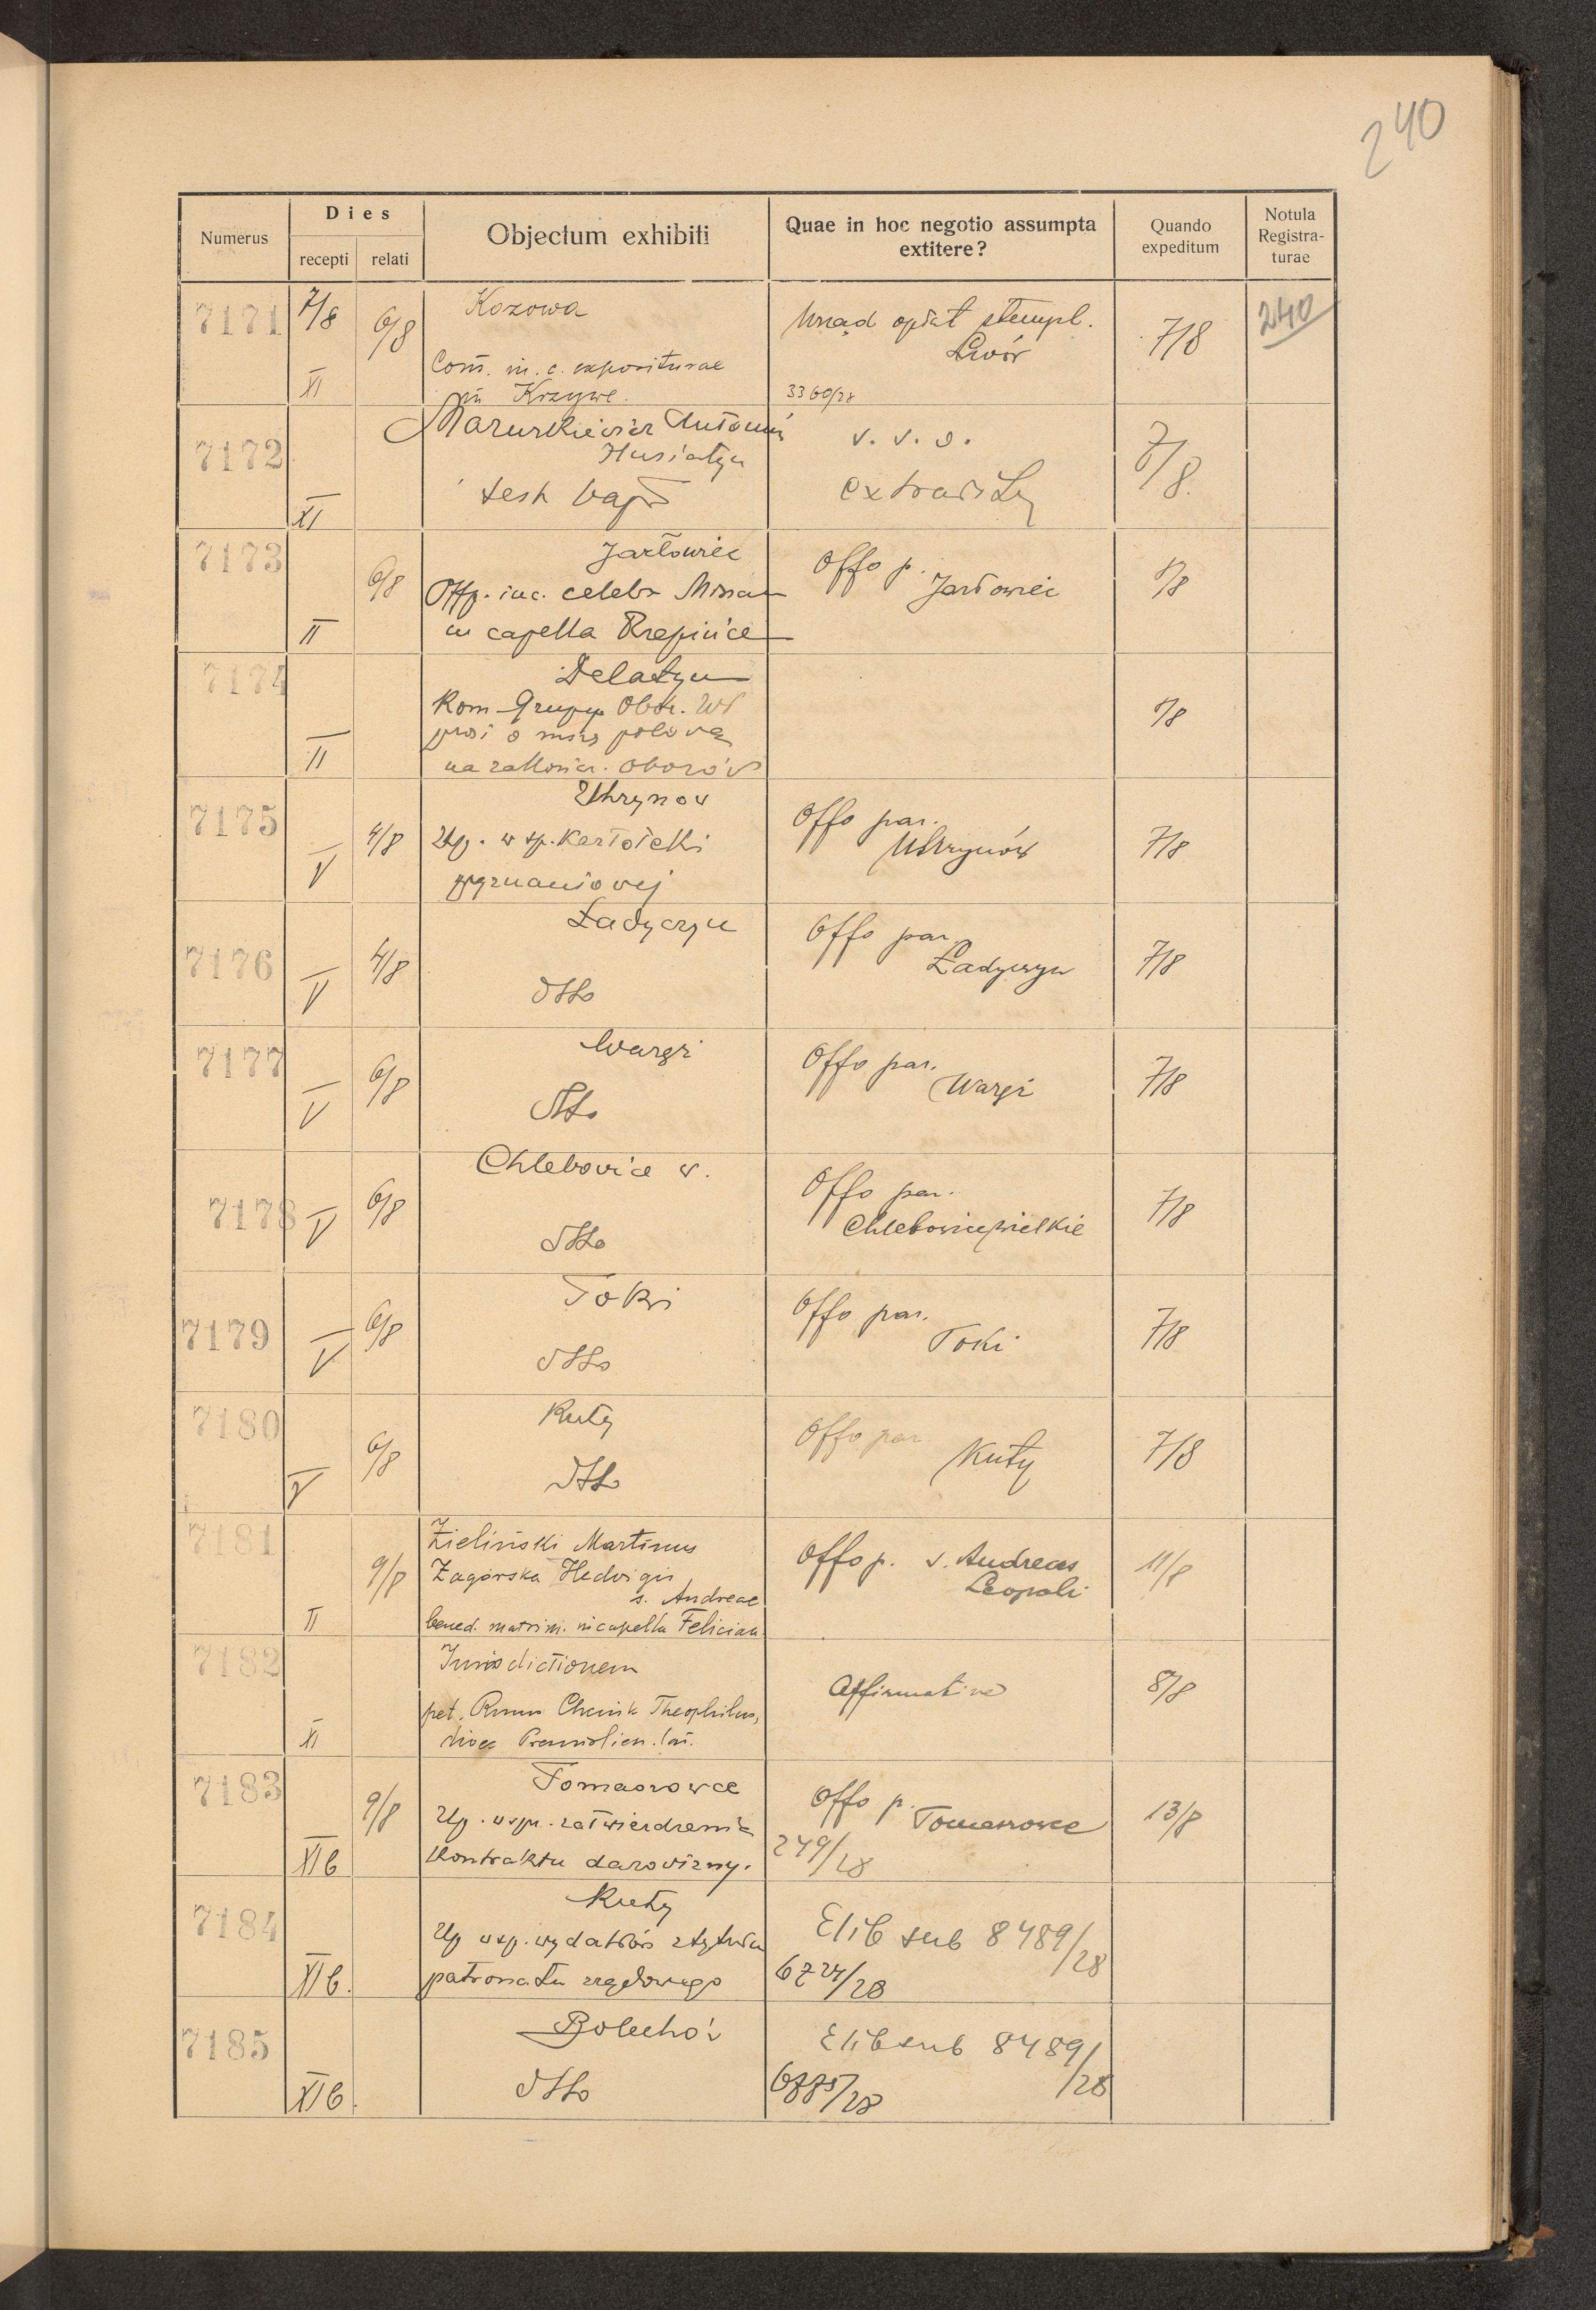 240
Numerus
Dies
recepti relati
Objectum exhibiti
Quae in hoc negotio assumpta
extitere?
Quando
expeditum
Notula
Registra-
turae
7171 7/8 6/8 Kozowa
Com. in. c. expositurae
in Krzywe.
XI
Urząd opłat stempl.
Lwów
3360/28
7/8
240
7172
Husiatyn
test bapt
XI
v. v. o.
7/8
7173 6/8 Jazłowiec
celebr Missae
in capella Rzepińce
II
Offo p. Jazłowiec
8/8
7174 Delatyn
Kom Grupy Obo. WF
prosi o mszę polową
na zakończ. obozów
II
8/8
7175 4/8 Uhrynow
Up. w sp. Kartoteki
wyznaniowej
V
Offo par.
Uhrynów
7/8
7176 4/8 Ładyczyn
dtto
V
Offo par.
Ładyczyn
7/8
7177 6/8 Waręż
dtto
V
Offo par.
Waręż
7/8
7178 6/8 Chlebowice w.
dtto
V
Offo par.
Chlebowice wielkie
7/8
7179 6/8 Toki
dtto
V
Offo par.
Toki
7/8
7180 6/8 Kuty
dtto
V
Offo par
Kuty
7/8
7181 9/8 Zieliński Martinus
Zagórska Hedvigis
s. Andreae
bened. matrim. in capella Felician.
II
Offo p. s. Andreas
Leopoli
11/8
7182 Jurisdictionem
pet. Theophilus,
XI
Affirmative
8/8
7183 9/8 Tomaszowce
Up. w spr. zatwierdzenia
Kontraktu darowizny.
XIb
Offo p. Tomaszowce
249/28
13/8
7184 Kuty
Up w sp. wydatków z tytułu
patronatu rządowego
XIb.
Elib sub 8489/28
6724/28
7185 Bolechów
dtto
XIb.
Elib sub 8489/28
6885/28